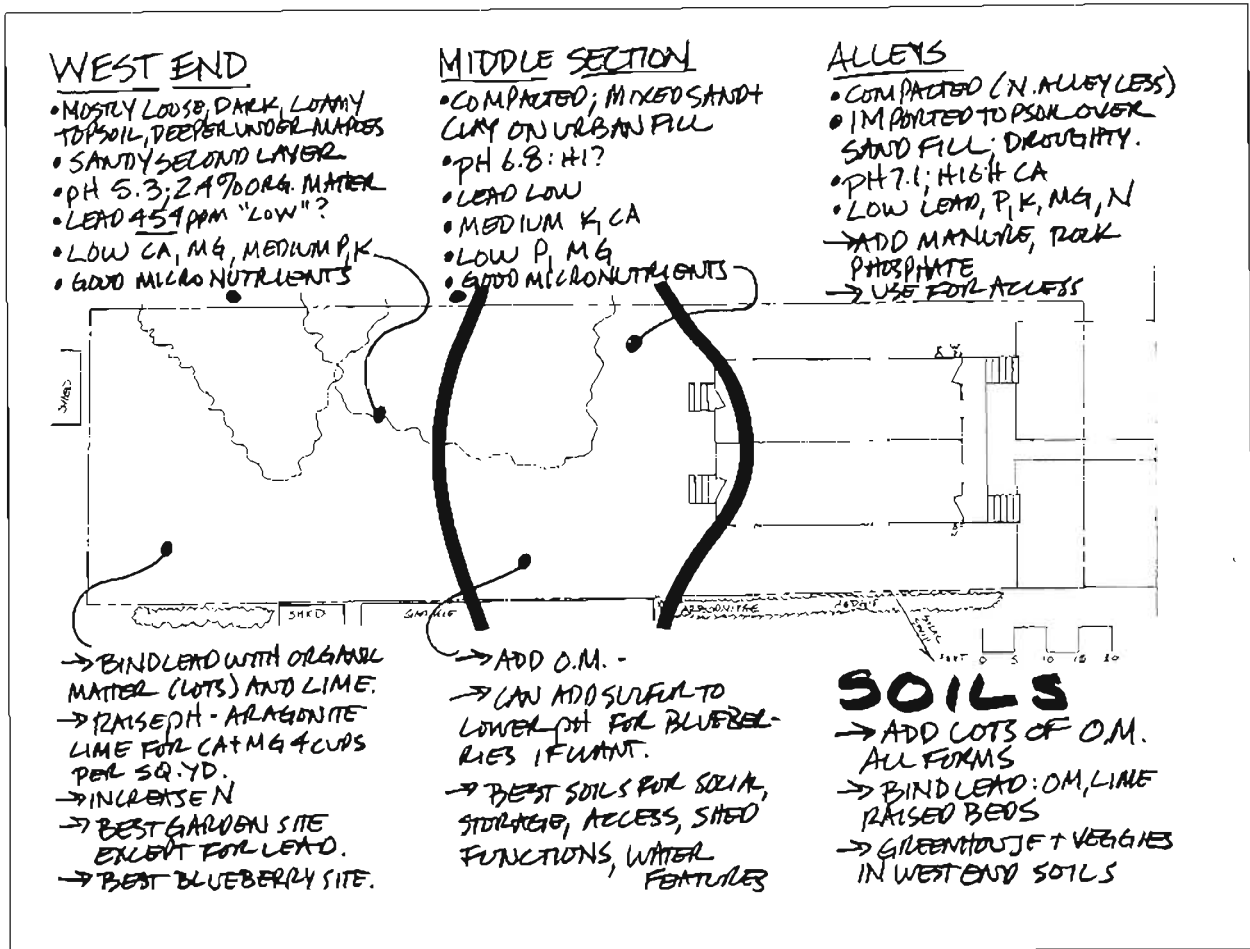 WEST END
• MOSTLY LOOSE, DARK, LOAMY
TOPSOIL, DEEPER UNDER MAPLES
• SANDY SECOND LAYER
• pH 5.3; 2.4% ORG. MATTER
• LEAD 454 ppm "LOW"?
• LOW CA, MG, MEDIUM P, K
• GOOD MICRONUTRIENTS
MIDDLE SECTION
• COMPACTED; MIXED SAND +
CLAY ON URBAN FILL
• pH 6.8: HI?
• LEAD LOW
• MEDIUM K, CA
• LOW P, MG
• GOOD MICRONUTRIENTS
ALLEYS
• COMPACTED (N. ALLEY LESS)
• IMPORTED TOPSOIL OVER
SAND FILL; DROUGHTY.
• pH 7.1; HIGH CA
• LOW LEAD, P, K, MG, N
→ ADD MANURE, ROCK
PHOSPHATE
→ USE FOR ACCESS
SHED
GARAGE
ARBORVITAE
HEDGE
0 5 10 15 20
→ BIND LEAD WITH ORGANIC
MATTER (LOTS) AND LIME.
→ RAISE pH - ARAGONITE
LIME FOR CA + MG 4 CUPS
PER SQ. YD.
→ INCREASE N
→ BEST GARDEN SITE
EXCEPT FOR LEAD.
→ BEST BLUEBERRY SITE.
→ ADD O.M. -
→ CAN ADD SULFUR TO
LOWER pH FOR BLUEBER-
RIES IF WANT.
→ BEST SOILS FOR SOCIAL,
STORAGE, ACCESS, SHED
FUNCTIONS, WATER
FEATURES
SOILS
→ ADD LOTS OF O.M.
ALL FORMS
→ BIND LEAD: OM, LIME
RAISED BEDS
→ GREENHOUSE + VEGGIES
IN WEST END SOILS